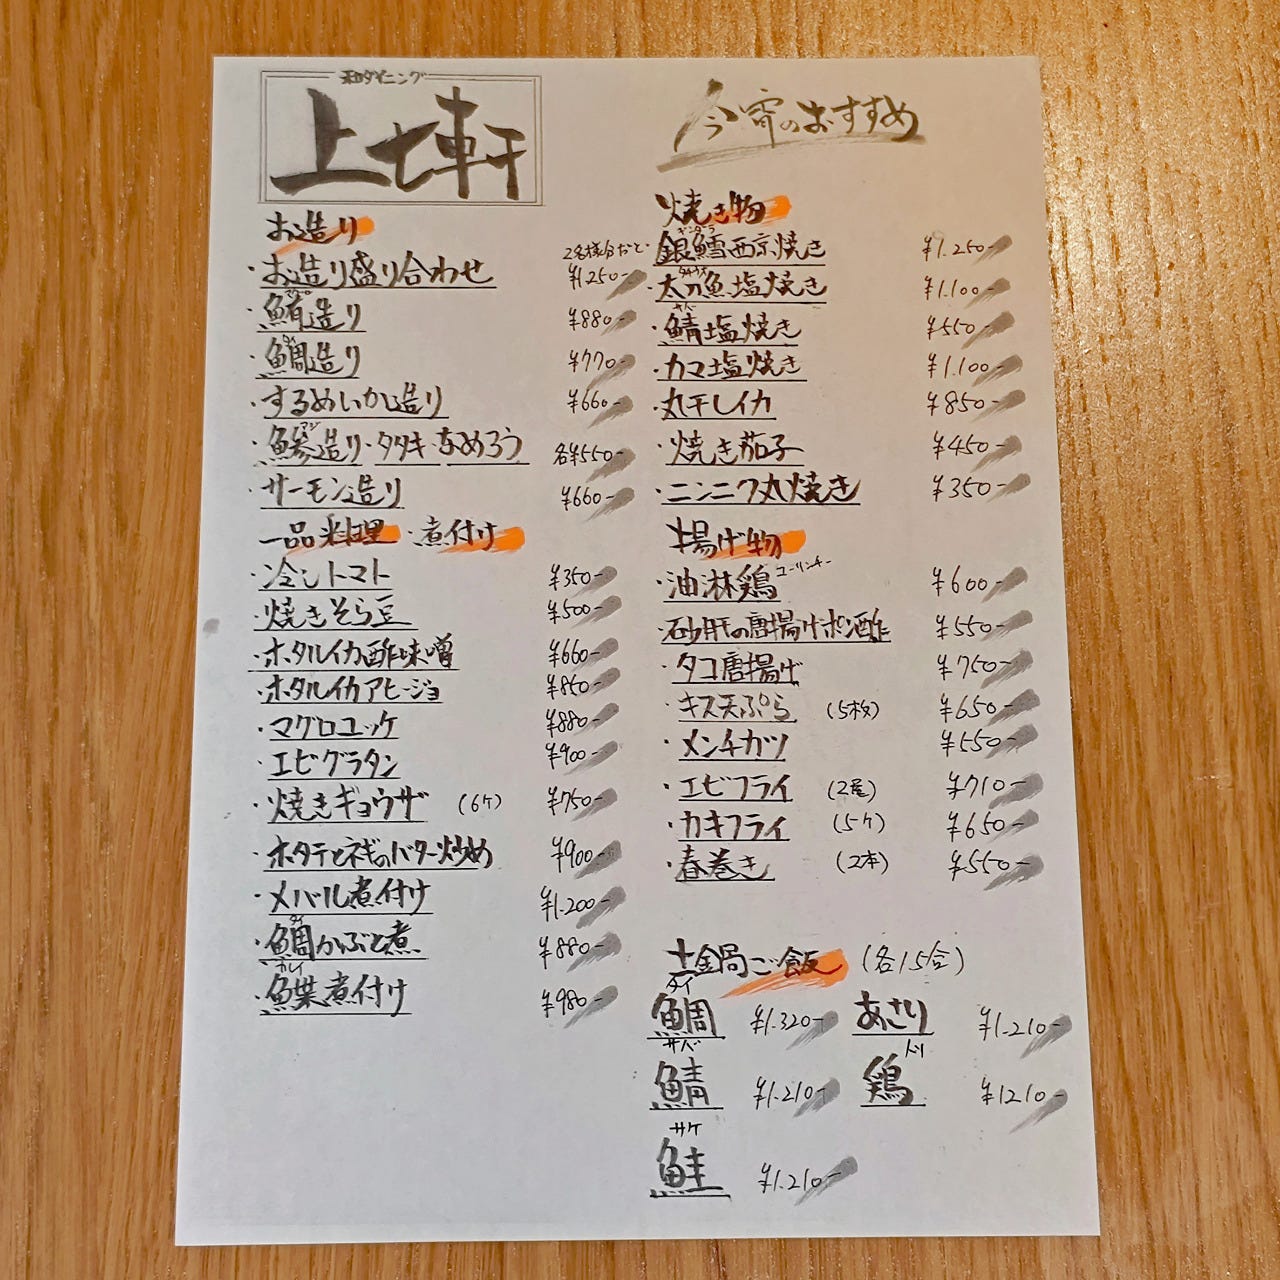 和ダイニング
上七軒
お造り
2名様分だと
・お造り盛り合わせ ¥1250-
・鮪造り ¥880-
タイ
・鯛造り ¥770-
・するめいか造り ¥660-
アジ
・鯵造り・タタキ・なめろう 各¥550-
・サーモン造り ¥660-
一品料理・煮付け
・冷しトマト ¥350-
・焼きそら豆 ¥500-
・ホタルイカ酢味噌 ¥660-
・ホタルイカアヒージョ ¥850-
・マグロユッケ ¥880-
・エビグラタン ¥900-
・焼きギョウザ (6ケ) ¥750-
・ホタテとネギのバター炒め ¥900-
・メバル煮付け ¥1.200-
タイ
・鯛かぶと煮 ¥880-
カレイ
・鰈煮付け ¥980-
今宵のおすすめ
焼き物
ギンダラ
・銀鱈西京焼き ¥1.250-
タチウオ
・太刀魚塩焼き ¥1.100-
サバ
・鯖塩焼き ¥550-
・カマ塩焼き ¥1.100-
・丸干しイカ ¥850-
・焼き茄子 ¥450-
・ニンニク丸焼き ¥350-
揚げ物
・油淋鶏 ユーリンチー ¥600-
・砂肝の唐揚げポン酢 ¥550-
・タコ唐揚げ ¥750-
・キス天ぷら (5枚) ¥650-
・メンチカツ ¥550-
・エビフライ (2尾) ¥710-
・カキフライ (5ケ) ¥650-
・春巻き (2本) ¥550-
土鍋ご飯 (各1.5合)
タイ
鯛 ¥1.320- あさり ¥1.210-
サバ トリ
鯖 ¥1.210- 鶏 ¥1210-
サケ
鮭 ¥1.210-